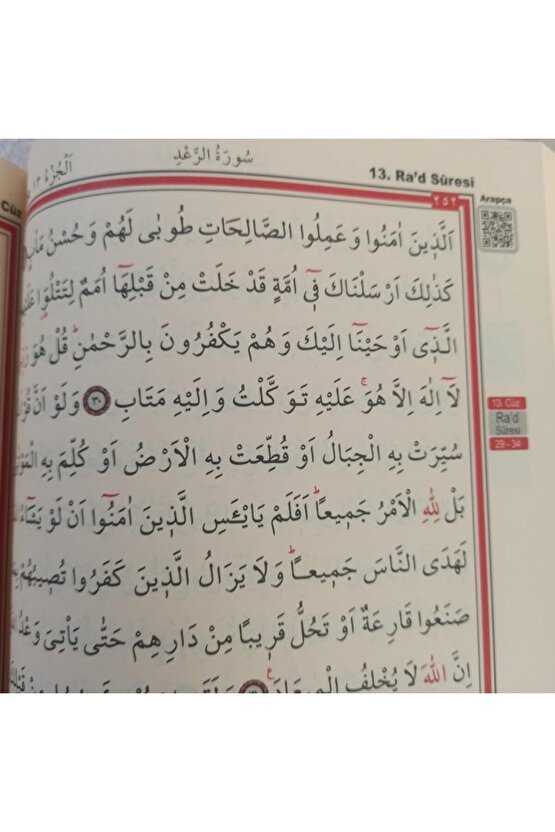 Cüz
اَلْجُزْءُ ١٣
سُورَةُ الرَّعْدِ
13. Ra'd Sûresi
٢٥٢
Arapça
اَلَّذ۪ينَ اٰمَنُوا وَعَمِلُوا الصَّالِحَاتِ طُوبٰى لَهُمْ وَحُسْنُ مَاٰبٍ
كَذٰلِكَ اَرْسَلْنَاكَ ف۪ٓي اُمَّةٍ قَدْ خَلَتْ مِنْ قَبْلِهَٓا اُمَمٌ لِتَتْلُوَ۬ا
الَّذ۪ٓي اَوْحَيْنَٓا اِلَيْكَ وَهُمْ يَكْفُرُونَ بِالرَّحْمٰنِۜ قُلْ هُوَ
لَٓا اِلٰهَ اِلَّا هُوَۚ عَلَيْهِ تَوَكَّلْتُ وَاِلَيْهِ مَتَابِ ﴿٣٠﴾ وَلَوْ اَنَّ
سُيِّرَتْ بِهِ الْجِبَالُ اَوْ قُطِّعَتْ بِهِ الْاَرْضُ اَوْ كُلِّمَ بِهِ
بَلْ لِلّٰهِ الْاَمْرُ جَم۪يعاًۜ اَفَلَمْ يَايْـَٔسِ الَّذ۪ينَ اٰمَنُٓوا اَنْ لَوْ
لَهَدَى النَّاسَ جَم۪يعاًۜ وَلَا يَزَالُ الَّذ۪ينَ كَفَرُوا تُص۪يبُهُمْ
صَنَعُوا قَارِعَةٌ اَوْ تَحُلُّ قَر۪يباً مِنْ دَارِهِمْ حَتّٰى يَأْتِيَ وَعْدُ
اِنَّ اللّٰهَ لَا يُخْلِفُ الْم۪يعَادَ۟
13. Cüz
Ra'd
Sûresi
29 - 34